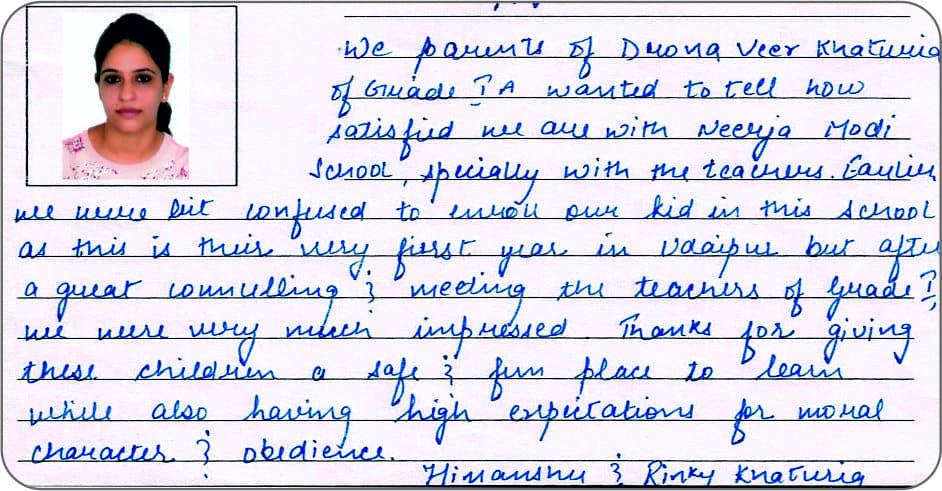 We parents of Drona Veer Khaturia
of Grade I A wanted to tell how
satisfied we are with Neerja Modi
School, specially with the teachers. Earlier
we were bit confused to enroll our kid in this school
as this is their very first year in Udaipur but after
a great counselling & meeting the teachers of Grade I,
we were very much impressed. Thanks for giving
these children a safe & fun place to learn
while also having high expectations for moral
character & obedience.
Himanshu & Rinky Khaturia